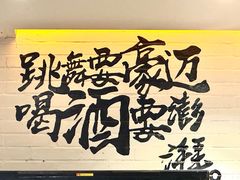 跳舞要豪迈
喝酒要澎湃